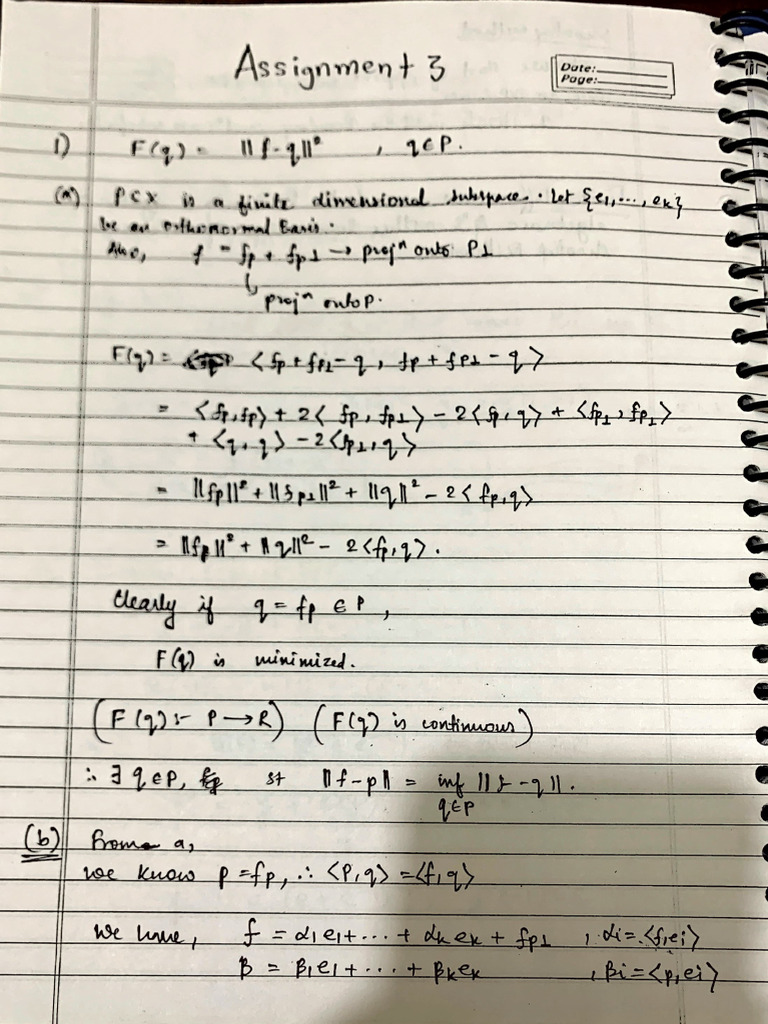 Assignment 3
Date:
Page:
1) F(q) = ||f-q||² , q∈P.
(a) P⊂X is a finite dimensional subspace. Let {e1,...,ek}
be an orthonormal Basis.
Also, f = fp + fp⊥ → projⁿ onto P⊥
↳ projⁿ onto P.
F(q) = <fp + fp⊥ - q, fp + fp⊥ - q>
= <fp, fp> + 2<fp, fp⊥> - 2<fp, q> + <fp⊥, fp⊥>
+ <q, q> - 2<fp⊥, q>
= ||fp||² + ||fp⊥||² + ||q||² - 2<fp, q>
= ||fp||² + ||q||² - 2<fp, q>.
Clearly if q = fp ∈ P,
F(q) is minimized.
(F(q) :- P → R) (F(q) is continuous)
∴ ∃ q∈P, st ||f-p|| = inf ||f-q||.
q∈P
(b) From a,
we know p = fp, ∴ <p, q> = <f, q>
We have, f = α1e1 + ... + αkek + fp⊥ , αi = <f, ei>
β = β1e1 + ... + βkek , βi = <p, ei>